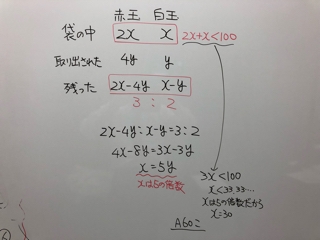 赤玉 白玉
袋の中 2x x 2x+x<100
取り出された 4y y
残った 2x-4y x-y
3 : 2
2x-4y:x-y=3:2
4x-8y=3x-3y
x=5y
xは5の倍数
3x<100
x<33.33…
xは5の倍数だから
x=30
A60こ